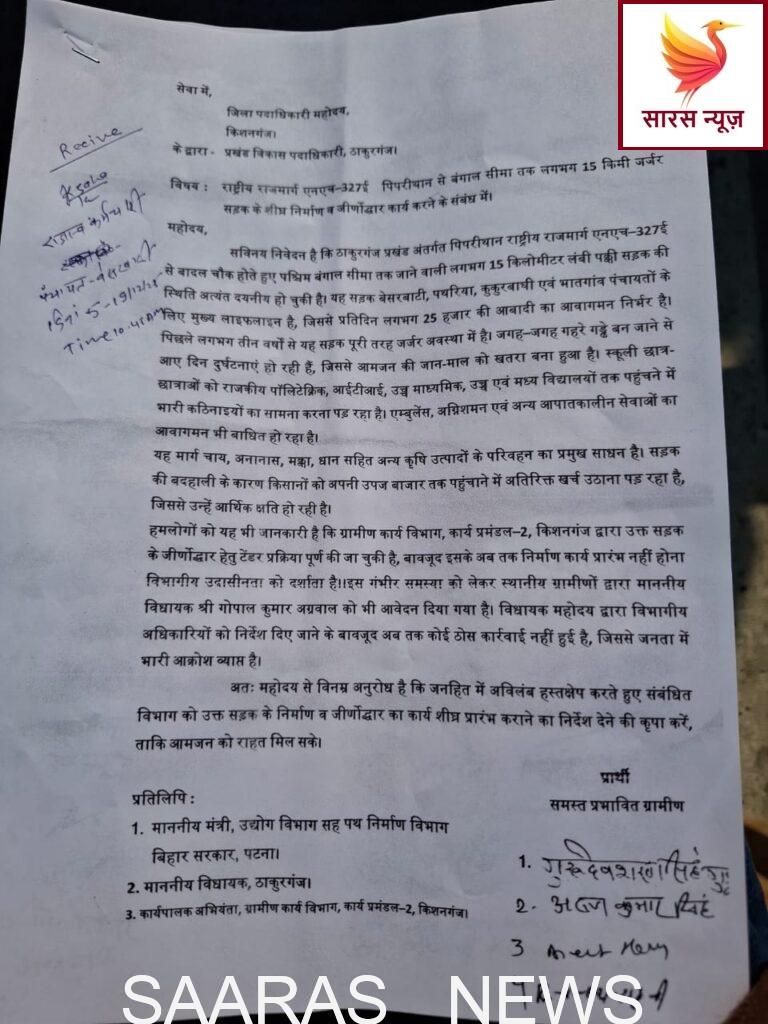 सारस न्यूज़
सेवा में,
जिला पदाधिकारी महोदय,
किशनगंज।
के द्वारा - प्रखंड विकास पदाधिकारी, ठाकुरगंज।
विषय : राष्ट्रीय राजमार्ग एनएच–327ई पिपरीथान से बंगाल सीमा तक लगभग 15 किमी जर्जर
सड़क के शीघ्र निर्माण व जीर्णोद्धार कार्य करने के संबंध में।
महोदय,
सविनय निवेदन है कि ठाकुरगंज प्रखंड अंतर्गत पिपरीथान राष्ट्रीय राजमार्ग एनएच–327ई
से बादल चौक होते हुए पश्चिम बंगाल सीमा तक जाने वाली लगभग 15 किलोमीटर लंबी पक्की सड़क की
स्थिति अत्यंत दयनीय हो चुकी है। यह सड़क बेसरबाटी, पथरिया, कुकुरबाघी एवं भातगांव पंचायतों के
लिए मुख्य लाइफलाइन है, जिससे प्रतिदिन लगभग 25 हजार की आबादी का आवागमन निर्भर है।
पिछले लगभग तीन वर्षों से यह सड़क पूरी तरह जर्जर अवस्था में है। जगह–जगह गहरे गड्ढे बन जाने से
आए दिन दुर्घटनाएं हो रही हैं, जिससे आमजन की जान-माल को खतरा बना हुआ है। स्कूली छात्र-
छात्राओं को राजकीय पॉलिटेक्निक, आईटीआई, उच्च माध्यमिक, उच्च एवं मध्य विद्यालयों तक पहुंचने में
भारी कठिनाइयों का सामना करना पड़ रहा है। एम्बुलेंस, अग्निशमन एवं अन्य आपातकालीन सेवाओं का
आवागमन भी बाधित हो रहा है।
यह मार्ग चाय, अनानास, मक्का, धान सहित अन्य कृषि उत्पादों के परिवहन का प्रमुख साधन है। सड़क
की बदहाली के कारण किसानों को अपनी उपज बाजार तक पहुंचाने में अतिरिक्त खर्च उठाना पड़ रहा है,
जिससे उन्हें आर्थिक क्षति हो रही है।
हमलोगों को यह भी जानकारी है कि ग्रामीण कार्य विभाग, कार्य प्रमंडल–2, किशनगंज द्वारा उक्त सड़क
के जीर्णोद्धार हेतु टेंडर प्रक्रिया पूर्ण की जा चुकी है, बावजूद इसके अब तक निर्माण कार्य प्रारंभ नहीं होना
विभागीय उदासीनता को दर्शाता है।।इस गंभीर समस्या को लेकर स्थानीय ग्रामीणों द्वारा माननीय
विधायक श्री गोपाल कुमार अग्रवाल को भी आवेदन दिया गया है। विधायक महोदय द्वारा विभागीय
अधिकारियों को निर्देश दिए जाने के बावजूद अब तक कोई ठोस कार्रवाई नहीं हुई है, जिससे जनता में
भारी आक्रोश व्याप्त है।
अतः महोदय से विनम्र अनुरोध है कि जनहित में अविलंब हस्तक्षेप करते हुए संबंधित
विभाग को उक्त सड़क के निर्माण व जीर्णोद्धार का कार्य शीघ्र प्रारंभ कराने का निर्देश देने की कृपा करें,
ताकि आमजन को राहत मिल सके।
प्रार्थी
समस्त प्रभावित ग्रामीण
प्रतिलिपि :
1. माननीय मंत्री, उद्योग विभाग सह पथ निर्माण विभाग
बिहार सरकार, पटना।
2. माननीय विधायक, ठाकुरगंज।
3. कार्यपालक अभियंता, ग्रामीण कार्य विभाग, कार्य प्रमंडल–2, किशनगंज।
Recive
राजस्व कर्मचारी
पंचायत-
Time
1. गुरूदेवशरण सिंह
2. कुमार सिंह
3
SAARAS NEWS